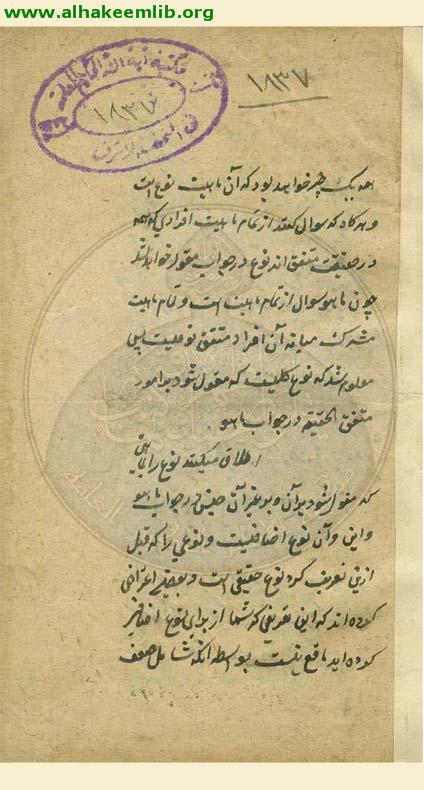 www.alhakeemlib.org
١٨٣٧
مكتبة آية الله الحكيم العامة
١٨٣٧
النجف الاشرف
همه یک چیز خواهد بود که آن ماهیت نوع است
و هرگاه که سوال کنند از تمام ماهیت افرادی که همه
در حقیقت متفق اند نوع در جواب مقول خواهد شد
چون ما هو سوال از تمام ماهیت است و تمام ماهیت
مشترک میانه آن افراد متفق نوعیت پس
معلوم شد که نوع کلیست که مقول شود بر امور
متفق الحقیقه در جواب ما هو
اطلاق میکنند نوع را بر ماهیتی
که مقول شود بر آن و بر غیر آن جنس در جواب ما هو
و این و آن نوع اضافیست و نوعی را که قبل
ازین تعریف کرد نوع حقیقی است و بعضی اعتراض
کرده اند که این تعریفی که شما از برای نوع
کرده اید مانع نیست بواسطه انکه شامل صنف